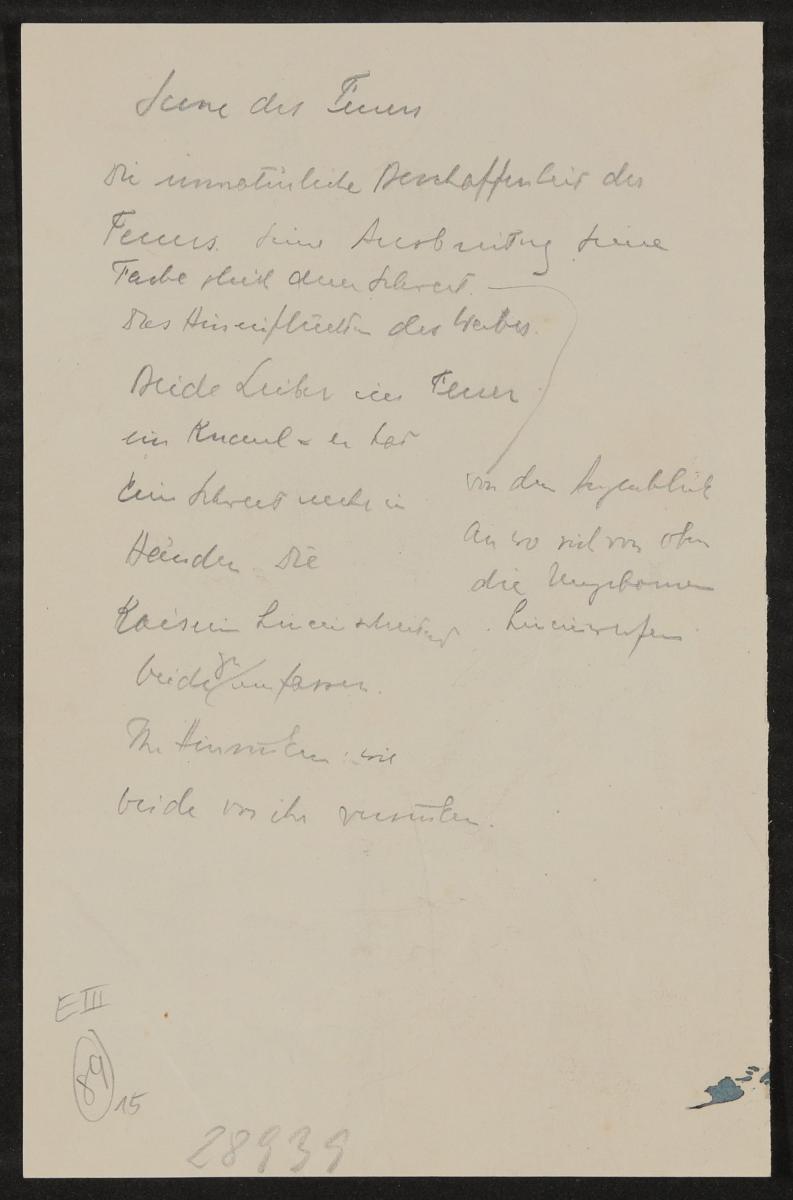 Scene des Feuers
Die unnatürliche Beschaffenheit des
Feuers. Seine Ausbreitung seine
Farbe gleich dem Schwert.
Das Hineinflüchten des Weibes.
Beide Leiber im Feuer
ein Knäuel – er hat
kein Schwert mehr in
Händen. Die
Kaiserin hineinschreitend
beide zu umfassen.
Ihr Hinsinken: wie
beide vor ihr versinken.
von dem Augenblick
an wo sich von oben
die Ungeborenen
hineinwerfen.
E III
89
15
28939